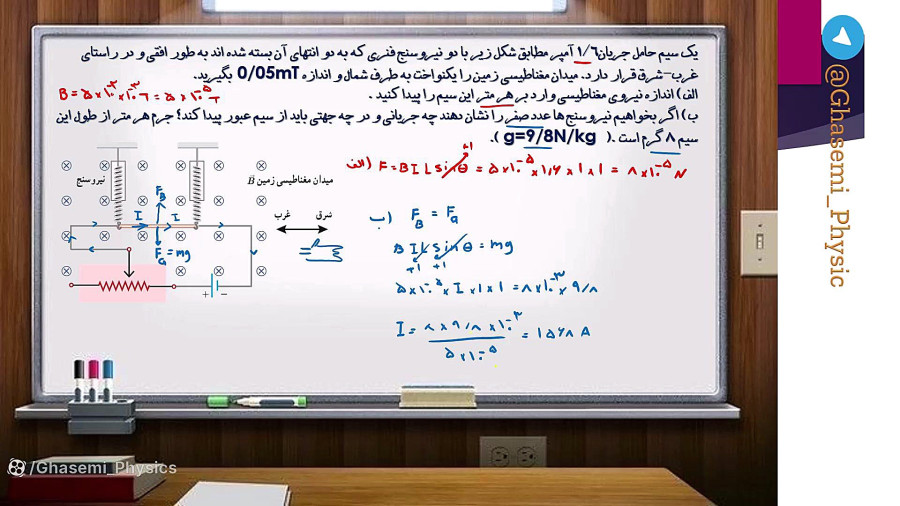 یک سیم حامل جریان ۱/۶ آمپر مطابق شکل زیر با دو نیروسنج فنری که به دو انتهای آن بسته شده اند به طور افقی و در راستای
غرب-شرق قرار دارد. میدان مغناطیسی زمین را یکنواخت به طرف شمال و اندازه 0/05mT بگیرید.
الف) اندازه نیروی مغناطیسی وارد بر هر متر این سیم را پیدا کنید.
B = ۵×۱۰⁻³×۱۰⁻² T = ۵×۱۰⁻⁵ T
ب) اگر بخواهیم نیروسنج ها عدد صفر را نشان دهند چه جریانی و در چه جهتی باید از سیم عبور پیدا کند؟ جرم هر متر از طول این
سیم ۸ گرم است. ( g=9/8N/kg ).
الف) F = BILsinθ = ۵×۱۰⁻⁵×۱/۶×۱×۱ = ۸×۱۰⁻⁵ N
+1
نیروسنج
میدان مغناطیسی زمین B
F_B
I
I
F_G = mg
غرب
شرق
+
−
ب) F_B = F_G
BILsinθ = mg
+1 +1
۵×۱۰⁻⁵×I×۱×۱ = ۸×۱۰⁻³×۹/۸
I = ۸×۹/۸×۱۰⁻³ / ۵×۱۰⁻⁵ = ۱۵۶۸ A
/Ghasemi_Physics
@Ghasemi_Physic